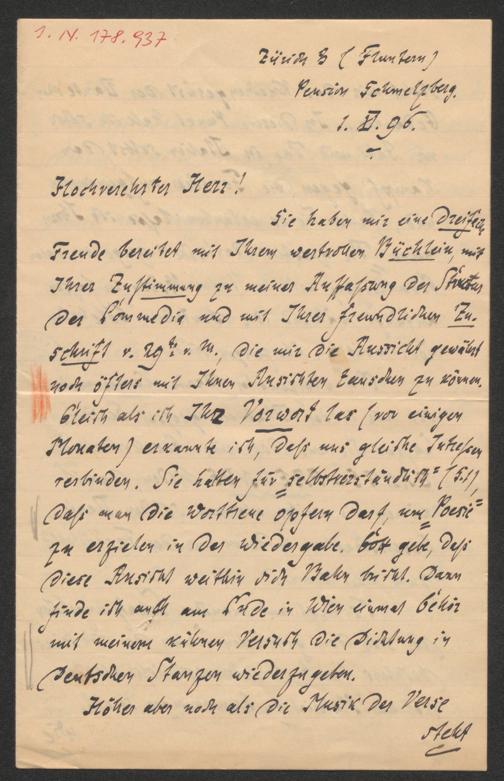 1. N. 178.937
Zürich 3 (Fluntern)
Pension Schmelzberg.
1. XI. 96.
Hochverehrter Herr!
Sie haben mir eine Dreifache
Freude bereitet mit Ihrem wertvollen Büchlein, mit
Ihrer Zustimmung zu meiner Auffassung der Struktur
der Commedia und mit Ihrer freundlichen Zu-
schrift v. 29ten v. M., die mir die Aussicht gewährt
noch öfters mit Ihnen Ansichten tauschen zu können.
Gleich als ich Ihr Vorwort las (vor einigen
Monaten) erkannte ich, daß uns gleiche Interessen
verbinden. Sie halten für "selbstverständlich" (S. 1),
daß man die Worttreue opfern darf, um "Poesie"
zu erzielen in der Wiedergabe. Gott gebe, daß
diese Ansicht weithin sich Bahn bricht. Dann
finde ich auch am Ende in Wien einmal Gehör
mit meinem kühnen Versuch die Dichtung in
Deutschen Stanzen wiederzugeben.
Höher aber noch als die Musik der Verse
steht